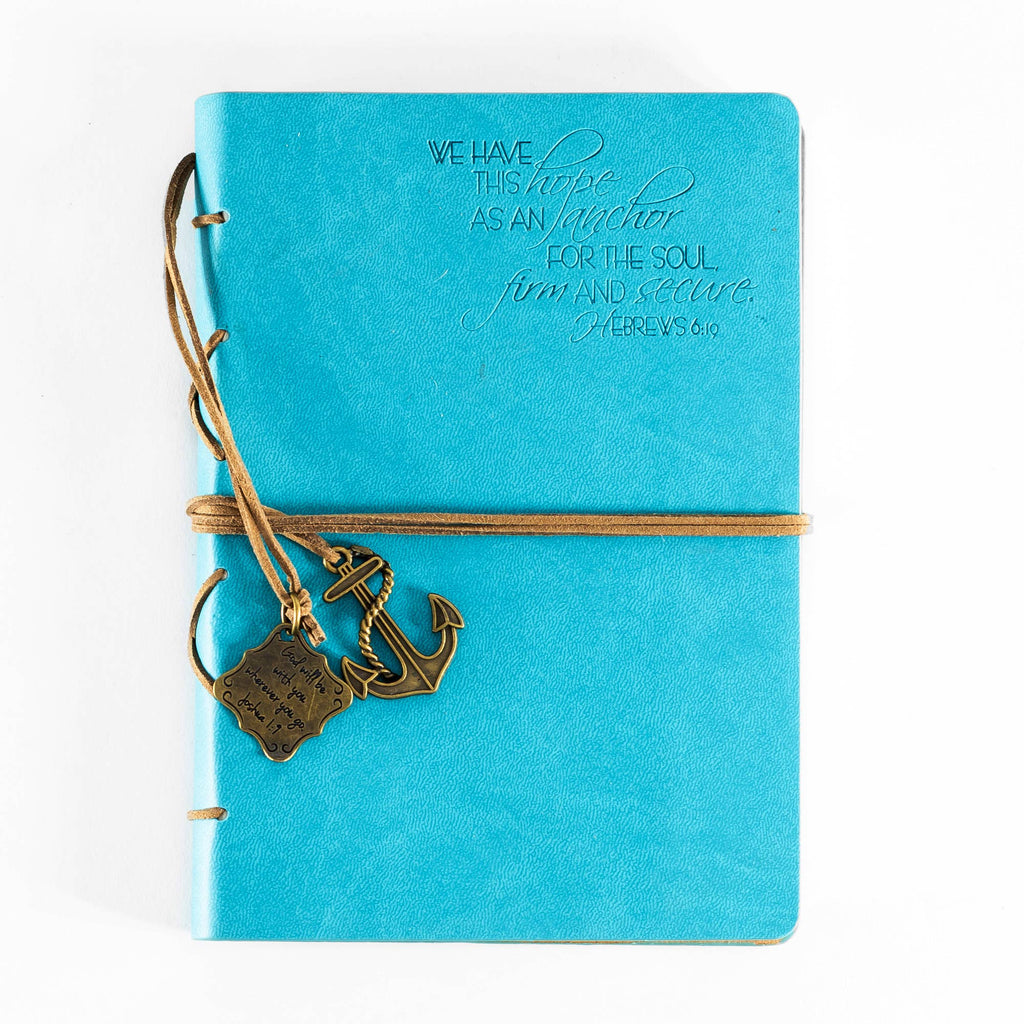 WE HAVE
THIS hope
AS AN anchor
FOR THE SOUL,
firm AND secure.
HEBREWS 6:19
God will be
with you
wherever you go.
Joshua 1:9